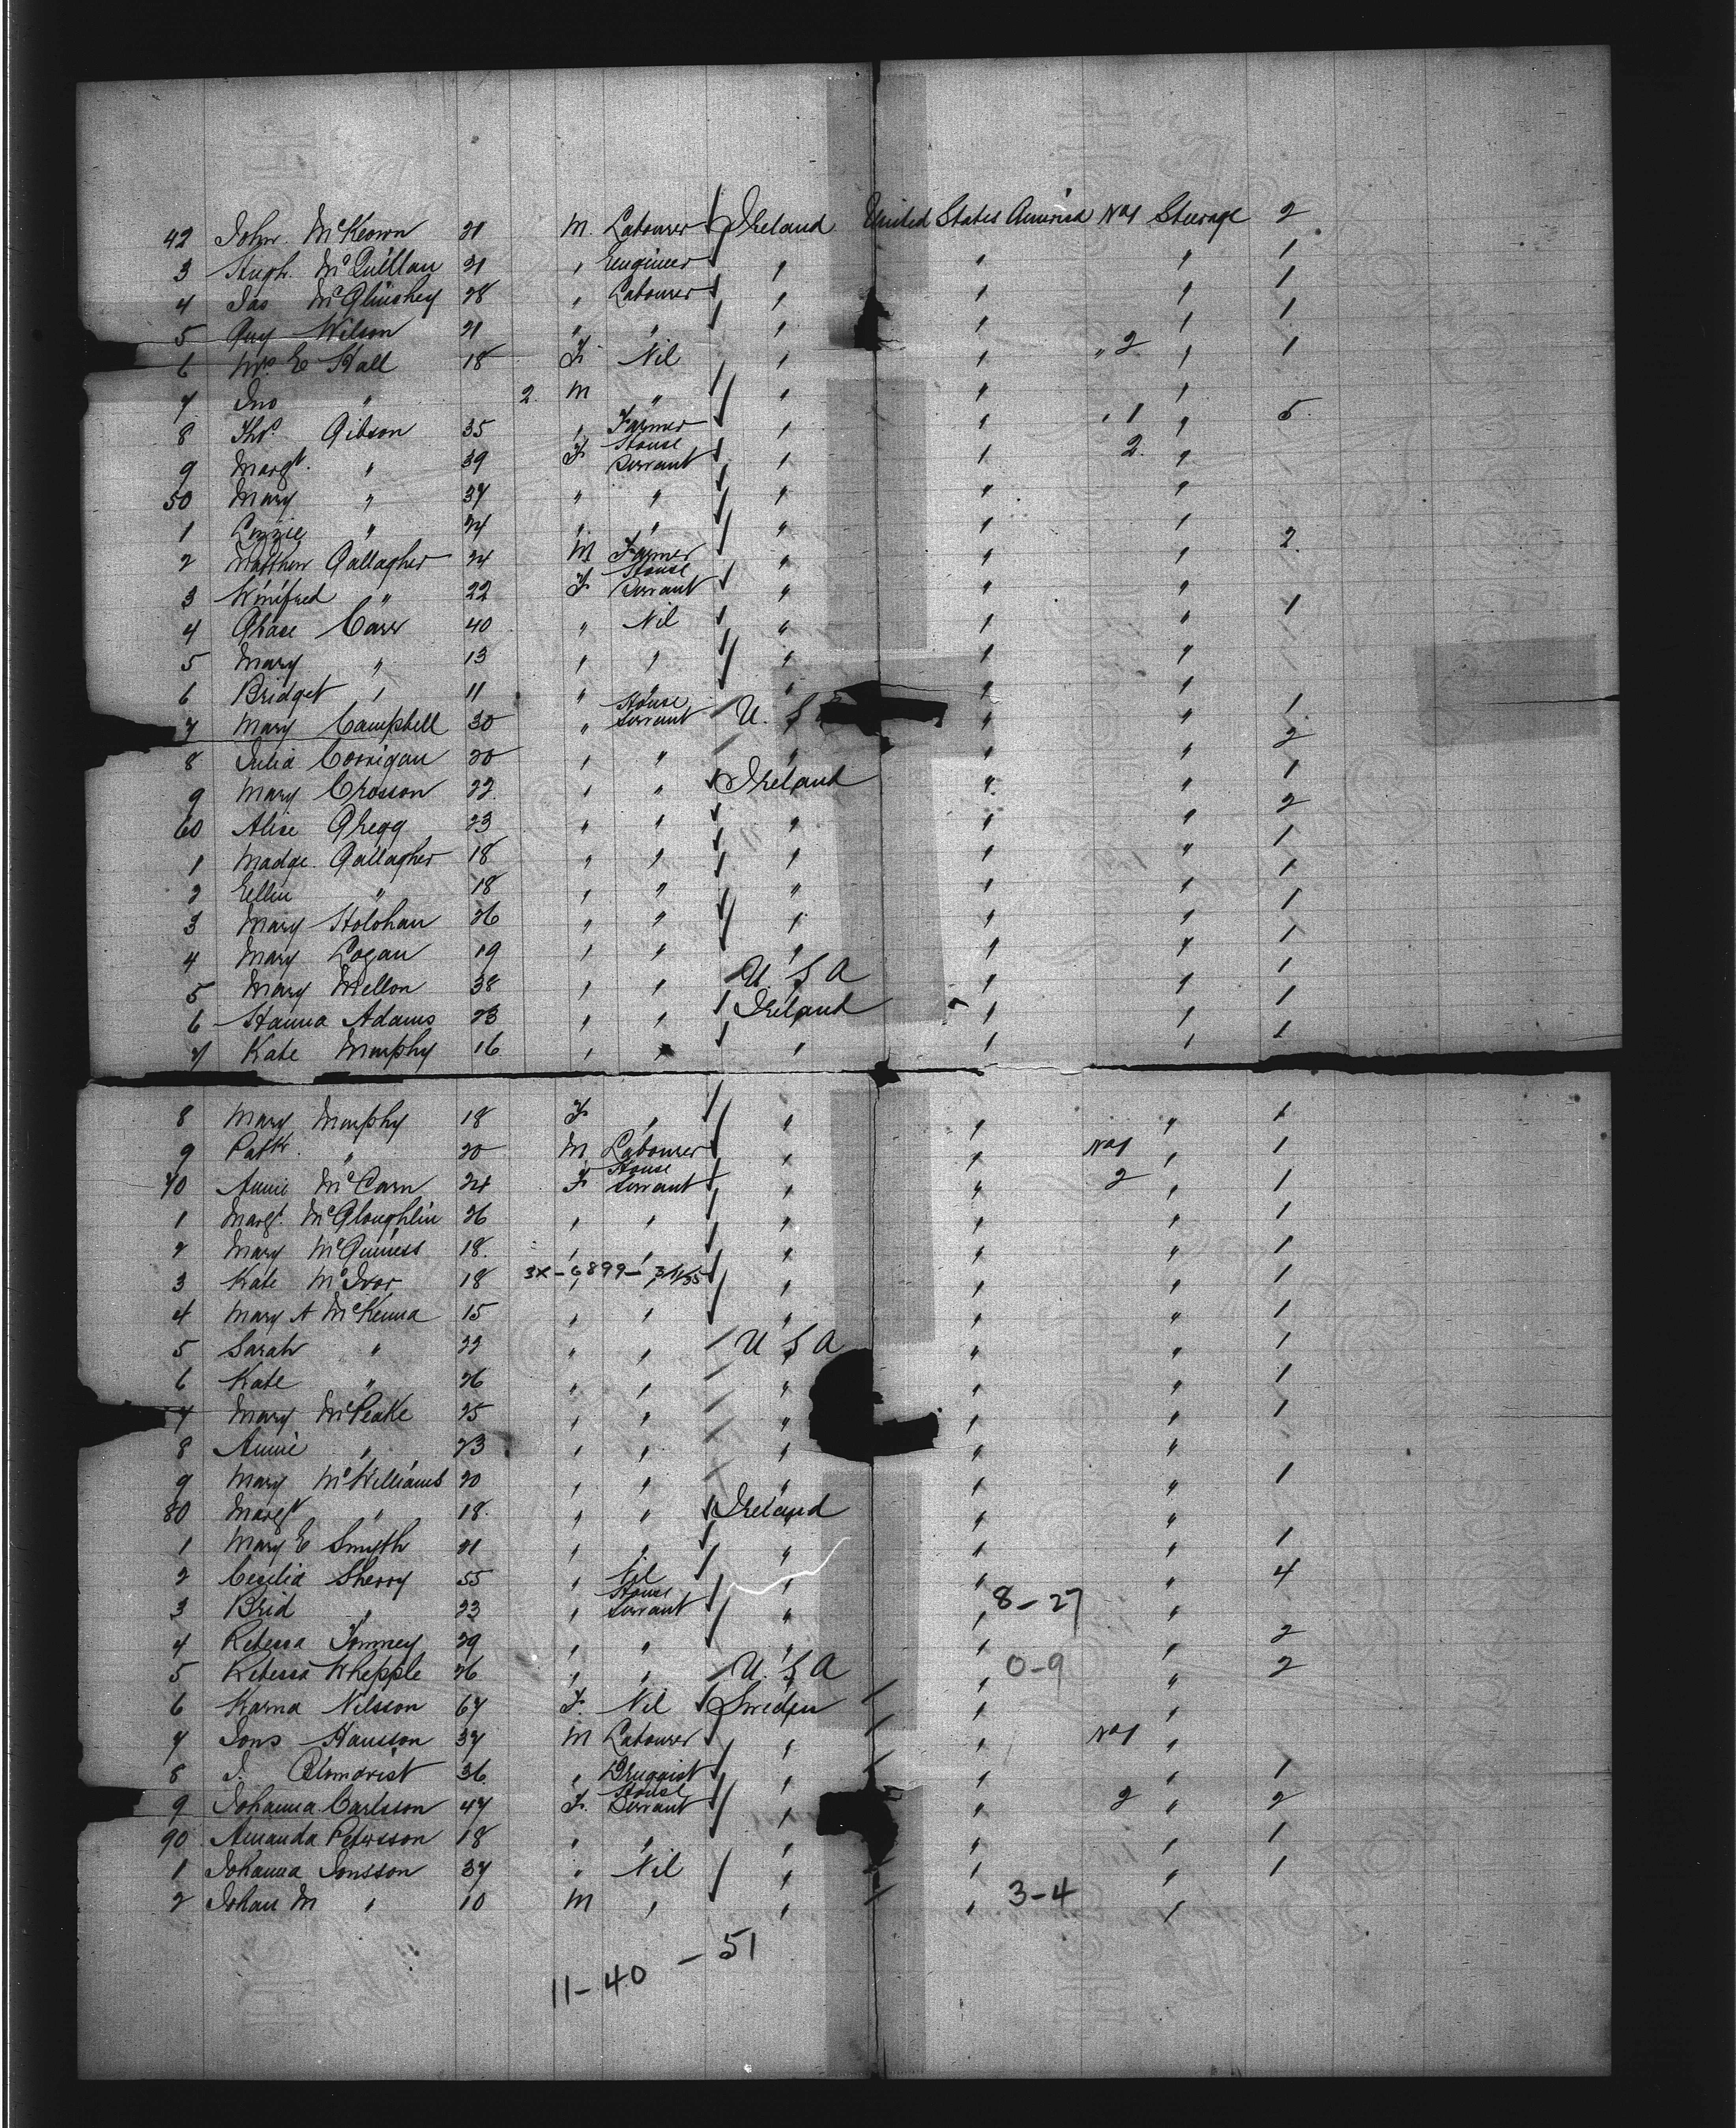 42 John McKeown 21 M. Labourer Ireland United States America No 1 Steerage 2
3 Hugh McQuillan 21 " Engineer " " " 1
4 Jas McGlinchey 28 " Labourer " " " 1
5 Guy Wilson 21 " " " " " 1
6 Mrs E Hall 18 F Nil " " " 2 " 1
7 Jno " 2 M " " " "
8 Thos. Gibson 35 " Farmer " " " 1 " 5
9 Margt. " 39 F House Servant " " 2 "
50 Mary " 37 " " " " "
1 Lizzie " 24 " " " " "
2 Matthew Gallagher 24 M Farmer " " " 2
3 Winifred " 22 F House Servant " " "
4 Grace Carr 40 " Nil " " " 1
5 Mary " 13 " " " " "
6 Bridget " 11 " " " " "
7 Mary Campbell 30 " House Servant U. S " " 1
8 Julia Corrigan 20 " " " " " 2
9 Mary Crosson 22 " " Ireland " " 1
60 Alice Gregg 23 " " " " " 2
1 Madge Gallagher 18 " " " " " 1
2 Ellen " 18 " " " " " 1
3 Mary Holohan 26 " " " " " 1
4 Mary Logan 19 " " " " " 1
5 Mary Mellon 38 " " U S A " " 1
6 Hanna Adams 23 " " Ireland " " 1
7 Kate Murphy 16 " " " " " 1
8 Mary Murphy 18 F " " " " 1
9 Patk. " 20 M Labourer " " No 1 " 1
70 Annie McCarn 24 F House Servant " " 2 " 1
1 Margt. McGloughlin 26 " " " " " 1
2 Mary McGuiness 18. " " " " " 1
3 Kate McIvor 18 3X-6899- " " " " 1
4 Mary A McKenna 15 " " " " " 1
5 Sarah " 22 " " U S A " " 1
6 Kate " 26 " " " " " 1
7 Mary McPeake 25 " " " " " 1
8 Annie " 23 " " " " "
9 Mary McWilliams 20 " " " " " 1
80 Margt " 18. " " Ireland " "
1 Mary E Smyth 21 " " " " " 1
2 Cecilia Sherry 55 " Nil " " " 4
3 Brid " 23 " House Servant " " 8-27 "
4 Rebecca Tomney 29 " " " " " 2
5 Rebecca Whepple 26 " " U. S A " 0-9 " 2
6 Karna Nilsson 67 F. Nil Sweden " "
7 Jons Hansson 37 M Labourer " " No 1 "
8 J. Blomqvist 36 " Druggist " " " 1
9 Johanna Carlsson 47 F. House Servant " " 2 " 2
90 Amanda Petersson 18 " " " " " 1
1 Johanna Jonsson 37 " Nil " " " 1
2 Johan M " 10 M " " " 3-4 "
11-40 - 51